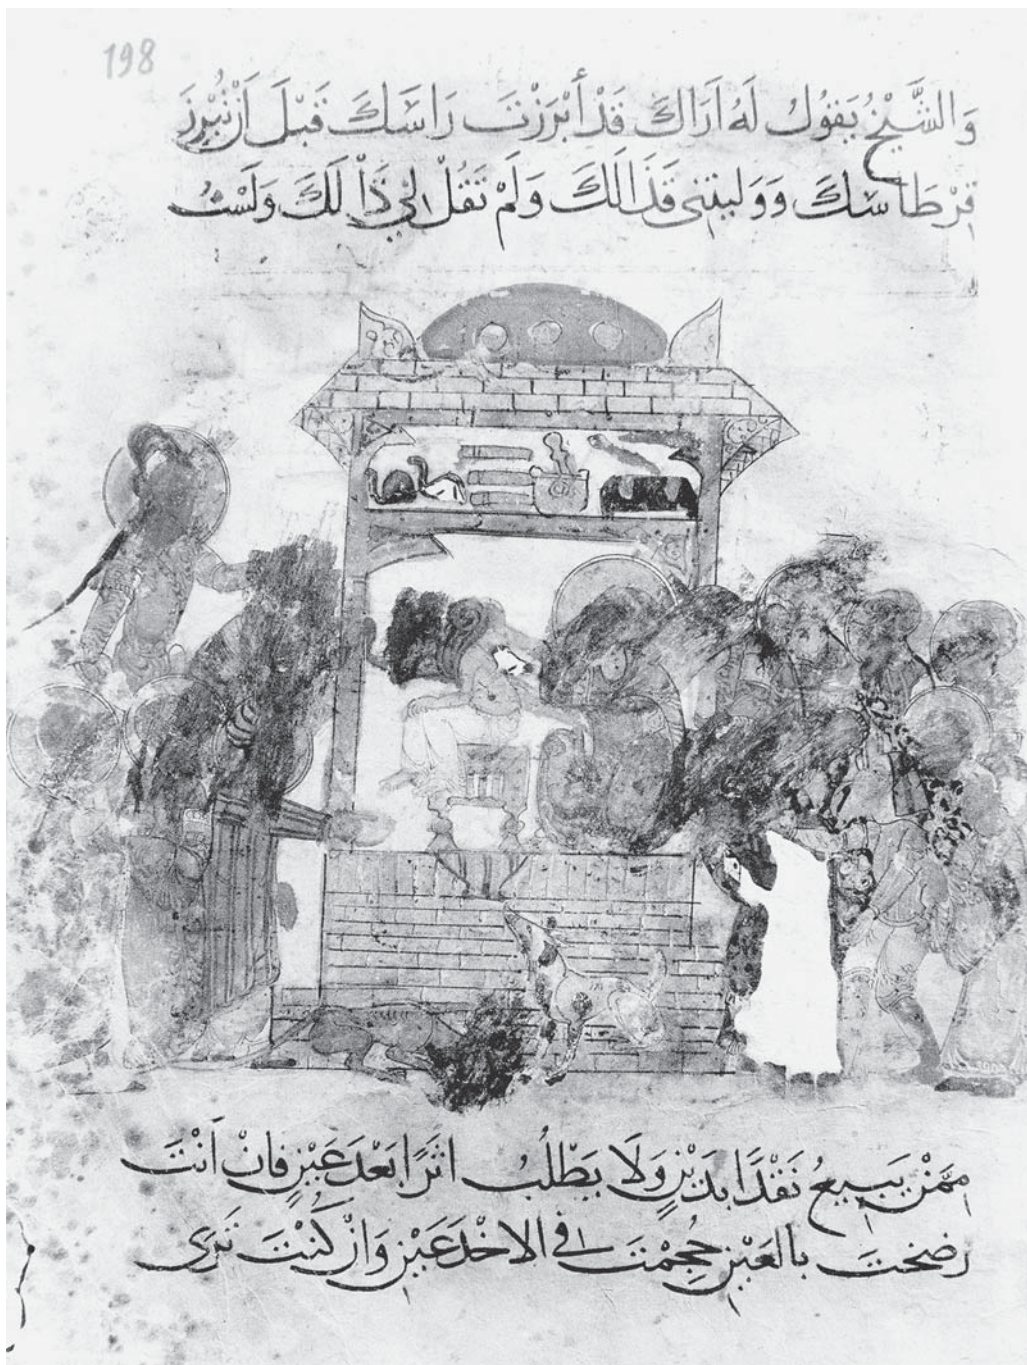 198
وَالشَّيْخُ يَقُولُ لَهُ أَرَاكَ قَدْ أَبْرَزْتَ رَاسَكَ قَبْلَ اَنْ تُبْرِزَ
قِرْطَاسَكَ وَوَليتنى قَذَالَكَ وَلَمْ تَقُلْ لِي ذَا لَكَ وَلَسْتُ
مِمَّنْ يَبِيعُ نَقْدًا بدَيْنٍ وَلَا يَطْلُبُ اثَرًا بَعْدَ عَيْنٍ فَانْ اَنْتَ
رضختَ بالعَيْنِ حُجِمْتَ فى الاخْدَعَيْنِ وَاِنْ كُنْتَ تَرَى